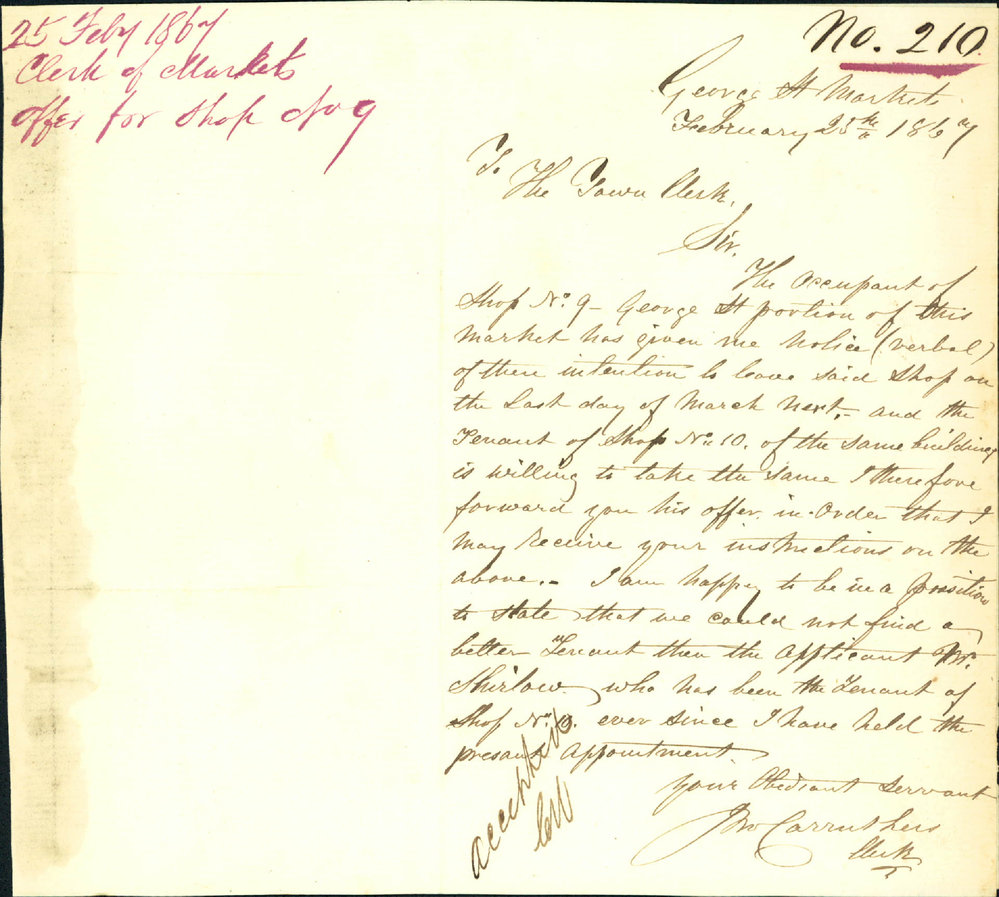 25 Feby 1867
Clerk of Markets
Offer for Shop No 9
No. 210
George St Markets
February 25th 1867
To
The Town Clerk,
Sir,
The Occupant of
Shop No. 9 - George St portion of this
Market has given me Notice (verbal)
of there intention to leave said Shop on
the Last day of March next, - and the
Tenant of Shop No. 10. of the same building
is willing to take the same I therefore
forward you his offer in Order that I
may Receive your instructions on the
above. - I am happy to be in a possition
to State that we could not find a
better Tenant then the applicant Mr.
Shirlow who has been the Tenant of
Shop No. 10. ever since I have held the
presant appointment.
your Obediant Servant
Jno Carruthers
Clerk